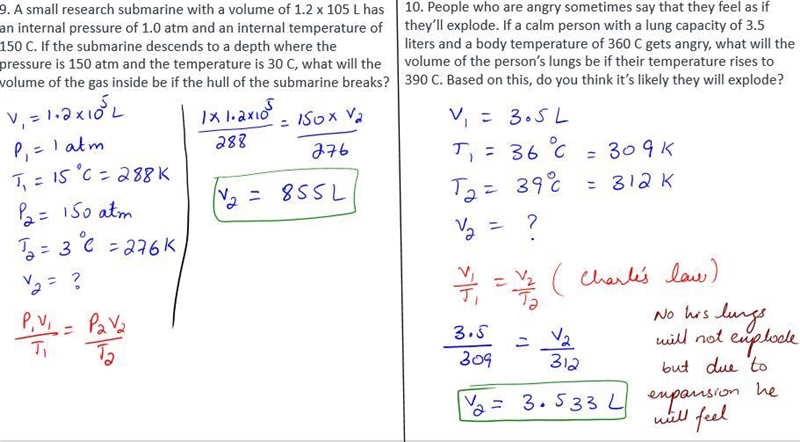 9. A small research submarine with a volume of 1.2 x 105 L has
an internal pressure of 1.0 atm and an internal temperature of
150 C. If the submarine descends to a depth where the
pressure is 150 atm and the temperature is 30 C, what will the
volume of the gas inside be if the hull of the submarine breaks?
V₁ = 1.2x10⁵ L
P₁ = 1 atm
T₁ = 15 °C = 288 K
P₂ = 150 atm
T₂ = 3 °C = 276 K
V₂ = ?
P₁V₁/T₁ = P₂V₂/T₂
1 x 1.2x10⁵/288 = 150 x V₂/276
V₂ = 855 L
10. People who are angry sometimes say that they feel as if
they'll explode. If a calm person with a lung capacity of 3.5
liters and a body temperature of 360 C gets angry, what will the
volume of the person's lungs be if their temperature rises to
390 C. Based on this, do you think it's likely they will explode?
V₁ = 3.5 L
T₁ = 36 °C = 309 K
T₂ = 39 °C = 312 K
V₂ = ?
V₁/T₁ = V₂/T₂ ( Charle's law)
3.5/309 = V₂/312
V₂ = 3.533 L
No his lungs
will not explode
but due to
expansion he
will feel